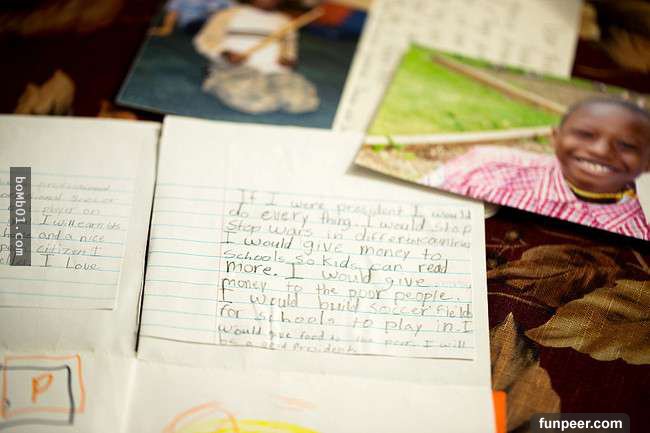 professional
soccer
player on
I will can its
be and a nice
citizen I
I Love
If I were president I would
do every thing. I would stop
Stop wars in different countries
I would give money to
Schools so kids can read
more. I would give
money to the poor people.
I would build soccer fields
for schools to play in. I
would give food to the poor. I will
be a good Presidents
P
bomb01.com
funpeer.com